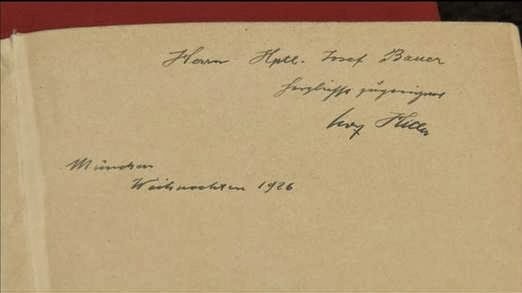 Herrn Hptl. Josef Bauer
herzlichst zugeeignet
Hitler
München
Weihnachten 1926